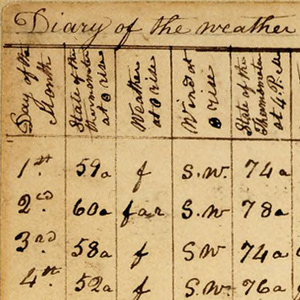 Diary of the weather
Day of the Month
State of the thermometer at ☉ rise
Weather at ☉ rise
Wind at ☉ rise
State of the Thermometer at 4 P.M
1st 59a f S.W. 74a
2cd 60a far S.W. 78a
3rd 58a f SW 74a
4th 52a f SW 76a